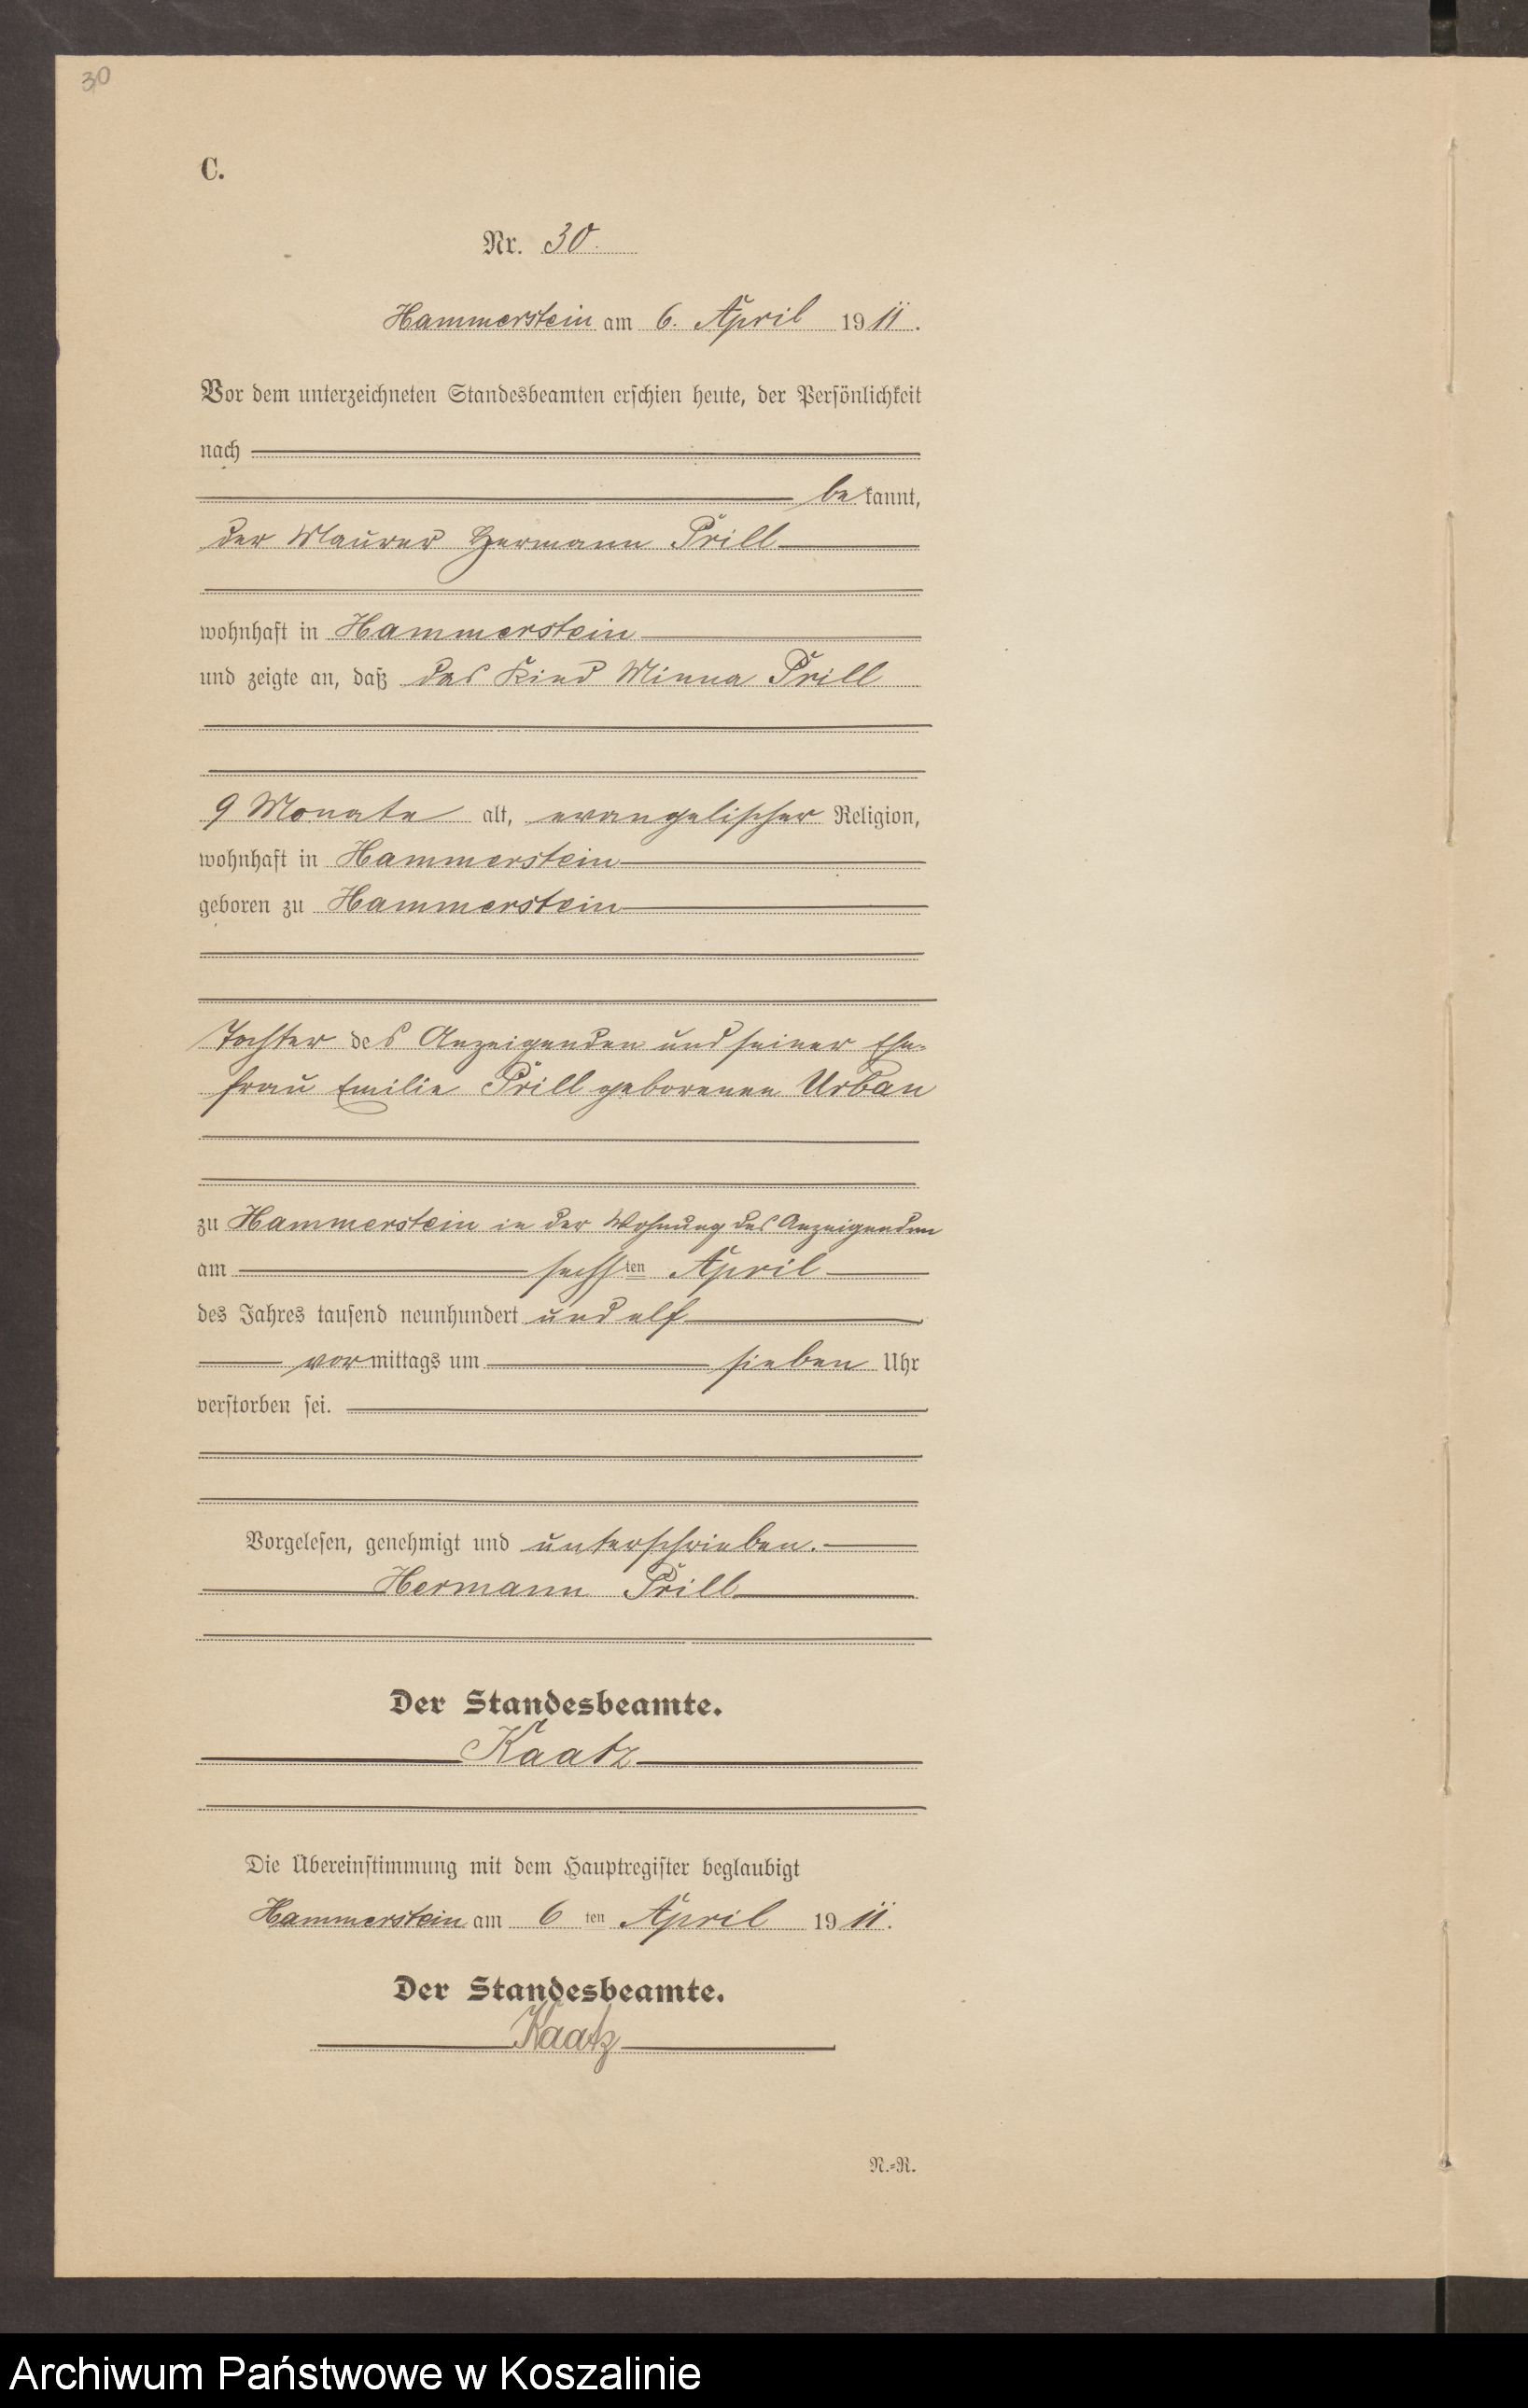 30
C.
Nr. 30.
Hammerstein am 6. April 1911.
Vor dem unterzeichneten Standesbeamten erschien heute, der Persönlichkeit
nach
bekannt,
der Maurer Hermann Prill
wohnhaft in Hammerstein
und zeigte an, daß das Kind Minna Prill
9 Monate alt, evangelischer Religion,
wohnhaft in Hammerstein
geboren zu Hammerstein
Tochter des Anzeigenden und seiner Ehe-
frau Emilie Prill geborenen Urban
zu Hammerstein in der Wohnung des Anzeigenden
am sechsten April
des Jahres tausend neunhundert und elf
vormittags um sieben Uhr
verstorben sei.
Vorgelesen, genehmigt und unterschrieben.
Hermann Prill
Der Standesbeamte.
Kaatz
Die Übereinstimmung mit dem Hauptregister beglaubigt
Hammerstein am 6ten April 1911.
Der Standesbeamte.
Kaatz
N.=R.
Archiwum Państwowe w Koszalinie